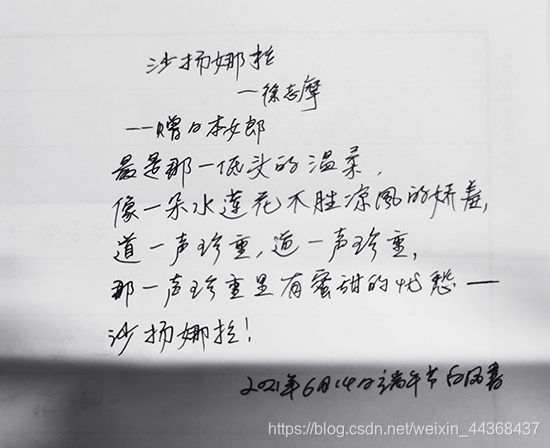 沙扬娜拉
—徐志摩
——赠日本女郎
最是那一低头的温柔,
像一朵水莲花不胜凉风的娇羞,
道一声珍重,道一声珍重,
那一声珍重里有蜜甜的忧愁——
沙扬娜拉!
2021年6月14日端午节
https://blog.csdn.net/weixin_44368437